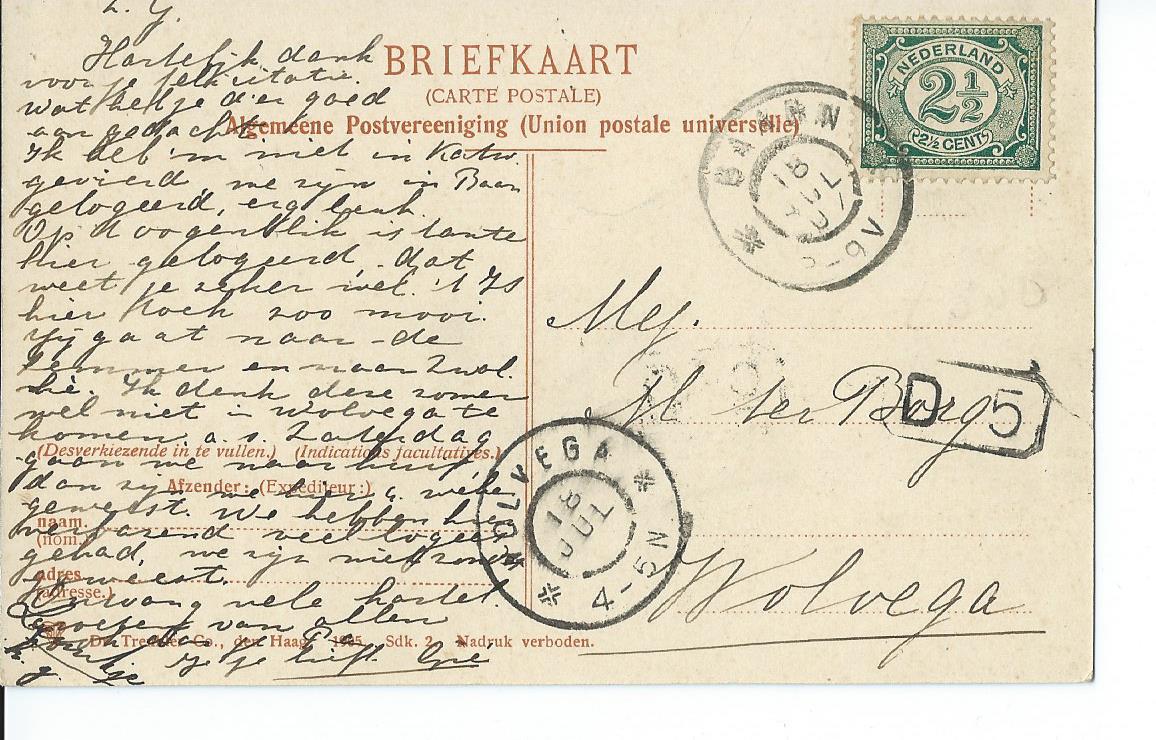 L. G.
Hartelijk dank
voor je felicitatie.
wat heb je d'er goed
aan gedacht
Ik heb 'm niet in Katw.
gevierd, we zijn in Baarn
gelogeerd, erg leuk.
Op 't oogenblik is tante
hier gelogeerd, dat
weet je zeker wel. 't Is
hier toch zoo mooi.
Zij gaat naar de
Lemmer en naar Zwol.
Ik denk deze zomer
wel niet in Wolvega te
komen. a. s. Zaterdag
gaan we naar huis,
dan zijn we hier week
geweest. We hebben hier
verbazend veel logees
gehad, we zijn niet
geweest.
Ontvang vele hartel.
groeten van allen
je liefh.
BRIEFKAART
(CARTE POSTALE)
Algemeene Postvereeniging (Union postale universelle)
(Desverkiezende in te vullen.) (Indications facultatives.)
Afzender: (Expéditeur:)
naam.
(nom.)
adres
(adresse.)
Dr. Trenkler Co., den Haag. 1905. Sdk. 2. Nadruk verboden.
NEDERLAND
2½
2½ CENTS
BAARN
18 JUL
-9V
Mej.
H ter Borg
D 5
WOLVEGA
18 JUL
4-5N
Wolvega